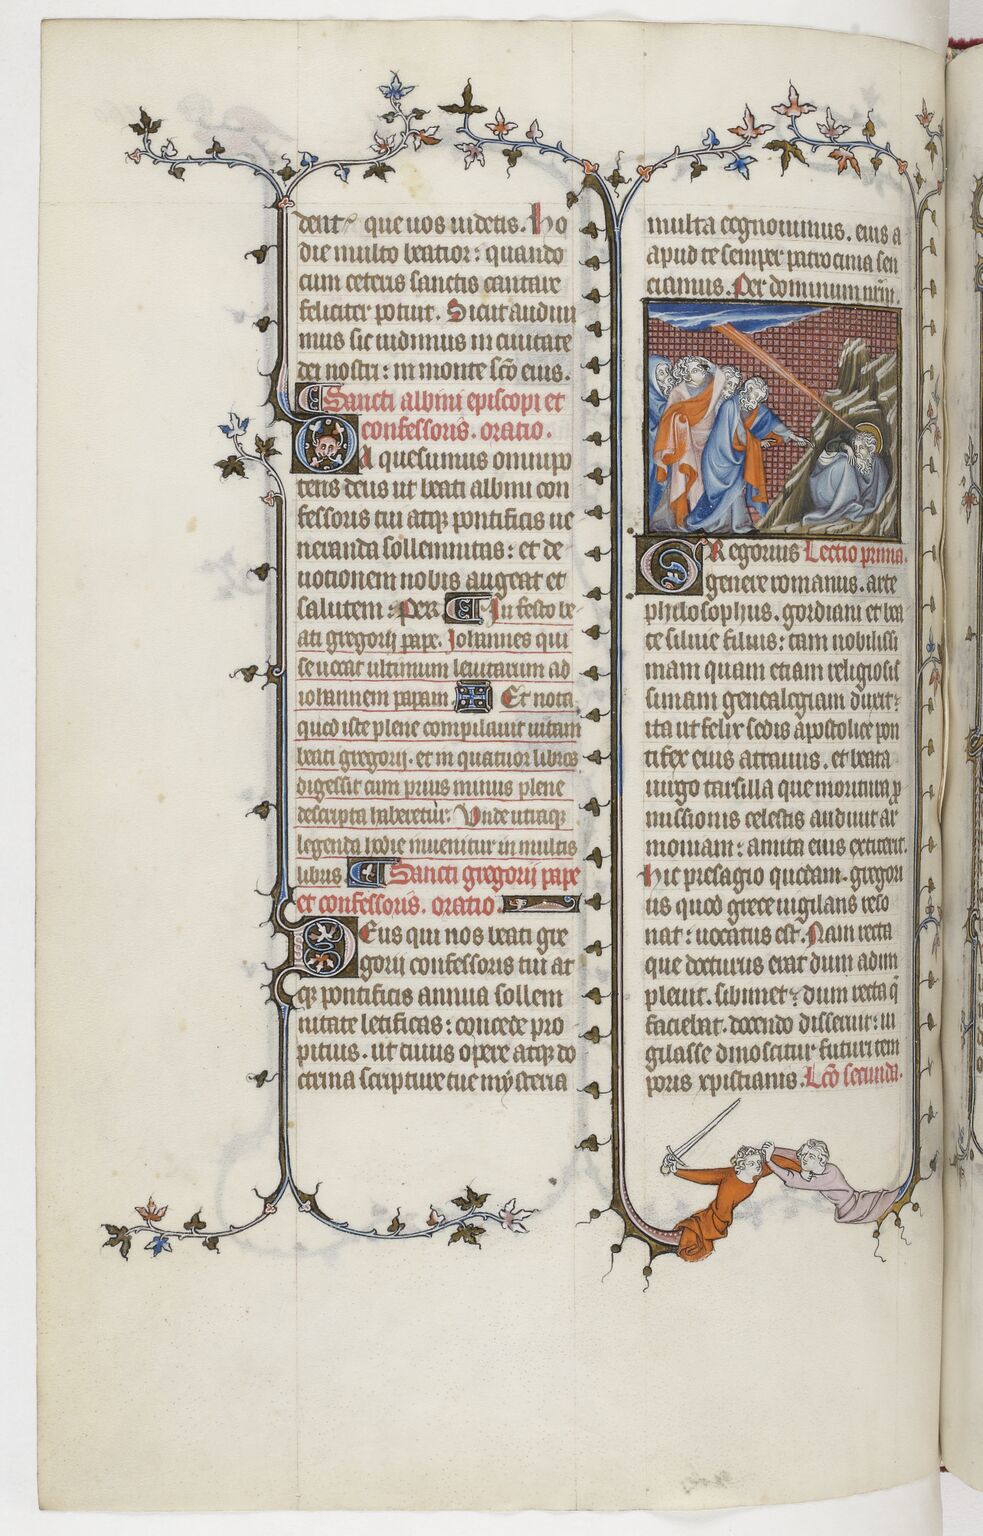 dent que uos uidetis. Ho
die multo beatior: quando
cum ceteris sanctis cantare
feliciter potuit. Sicut audiui
mus sic uidimus in ciuitate
dei nostri: in monte sco eius.
Sancti albini episcopi et
confessoris. oratio.
Da quesumus omnipo
tens deus ut beati albini con
fessoris tui atqz pontificis ue
neranda sollemnitas: et de
uotionem nobis augeat et
salutem: Per. In festo be
ati gregorij pape. Iohannes qui
se uocat ultimum leuitarum ad
iohannem papam Et nota
quod iste plene compilauit uitam
beati gregorij. et in quatuor libros
digessit cum prius minus plene
descripta haberetur: Vnde utraqz
legenda hodie inuenitur in multis
libris Sancti gregorij pape
et confessoris. oratio.
Deus qui nos beati gre
gorii confessoris tui at
qz pontificis annua sollem
nitate letificas: concede pro
pitius. ut cuius opere atqz do
ctrina scripture tue mysteria
multa cognouimus. eius a
apud te semper patrocinia sen
ciamus. Per dominum nrm.
Gregorius Lectio prima.
genere romanus. arte
philosophus. gordiani et bea
te siluie filius: tam nobilissi
mam quam etiam religiosis
simam genealogiam duxit:
ita ut felix sedis apostolice pon
tifex eius attauus. et beata
uirgo tarsilla que moritura p
missionis celestis audiuit ar
moniam: amita eius extiterit.
Hic presagio quodam. gregori
us quod grece uigilans reso
nat: uocatus est. Nam recta
que docturus erat dum adim
pleuit. sibimet: dum recta q
faciebat. docendo disseruit: ui
gilasse dinoscitur futuri tem
poris xpistianis. Lco secunda.